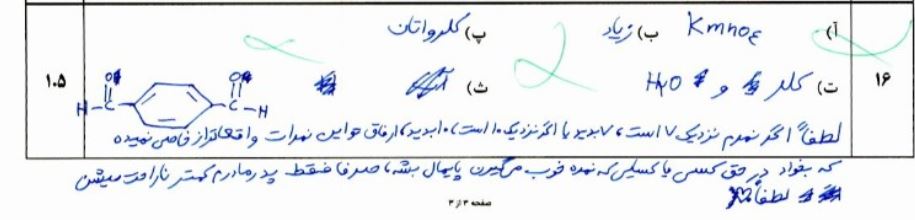 ۱۶
آ) KmnO۴ ب) زیاد پ) کلرواتان
ت) کلر و H₂O ث)
O O
H-C C-H
۱.۵
لطفاً اگر نمرم نزدیک ۷ است، ۷ بدید یا اگر نزدیک ۱۰ است، ۱۰ بدید، ارفاق هر این نمرات واقعاً از خاصی نمیده
که بخواد در حق کسی یا کسایی که نمره خوب میگیرن پایمال بشه، صرفا فقط پدر مادرم کمتر ناراحت میشن
لطفاً
صفحه ۳ از ۳